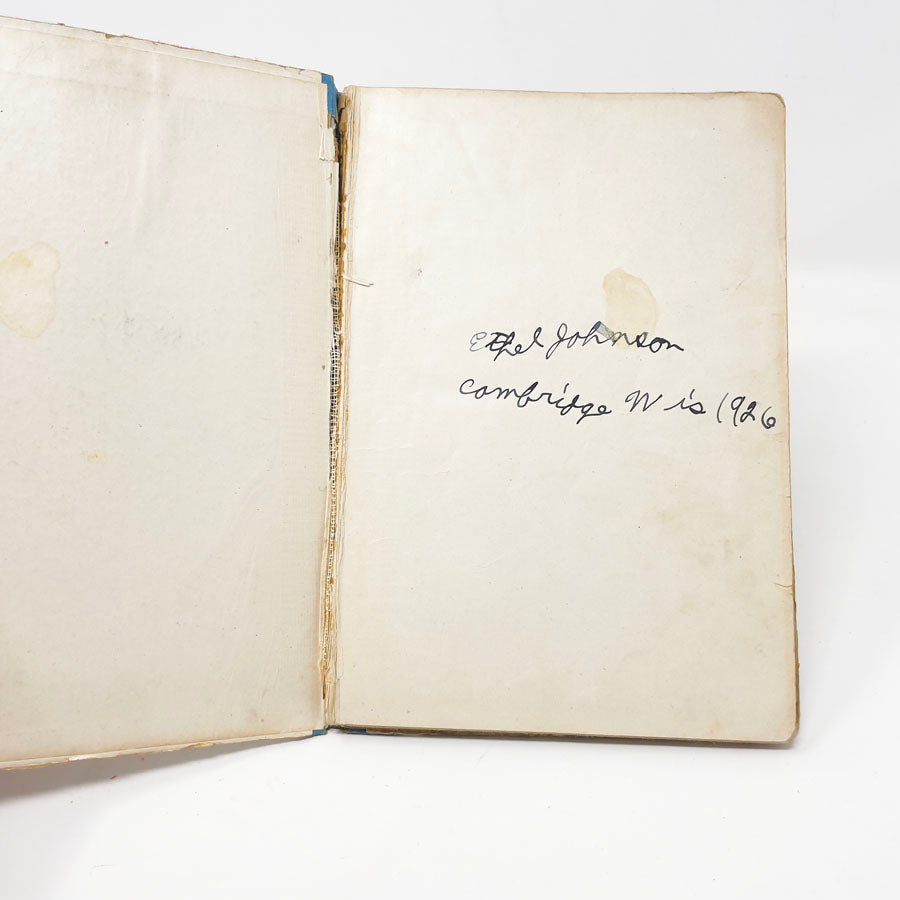 Ethel Johnson
Cambridge Wis 1926